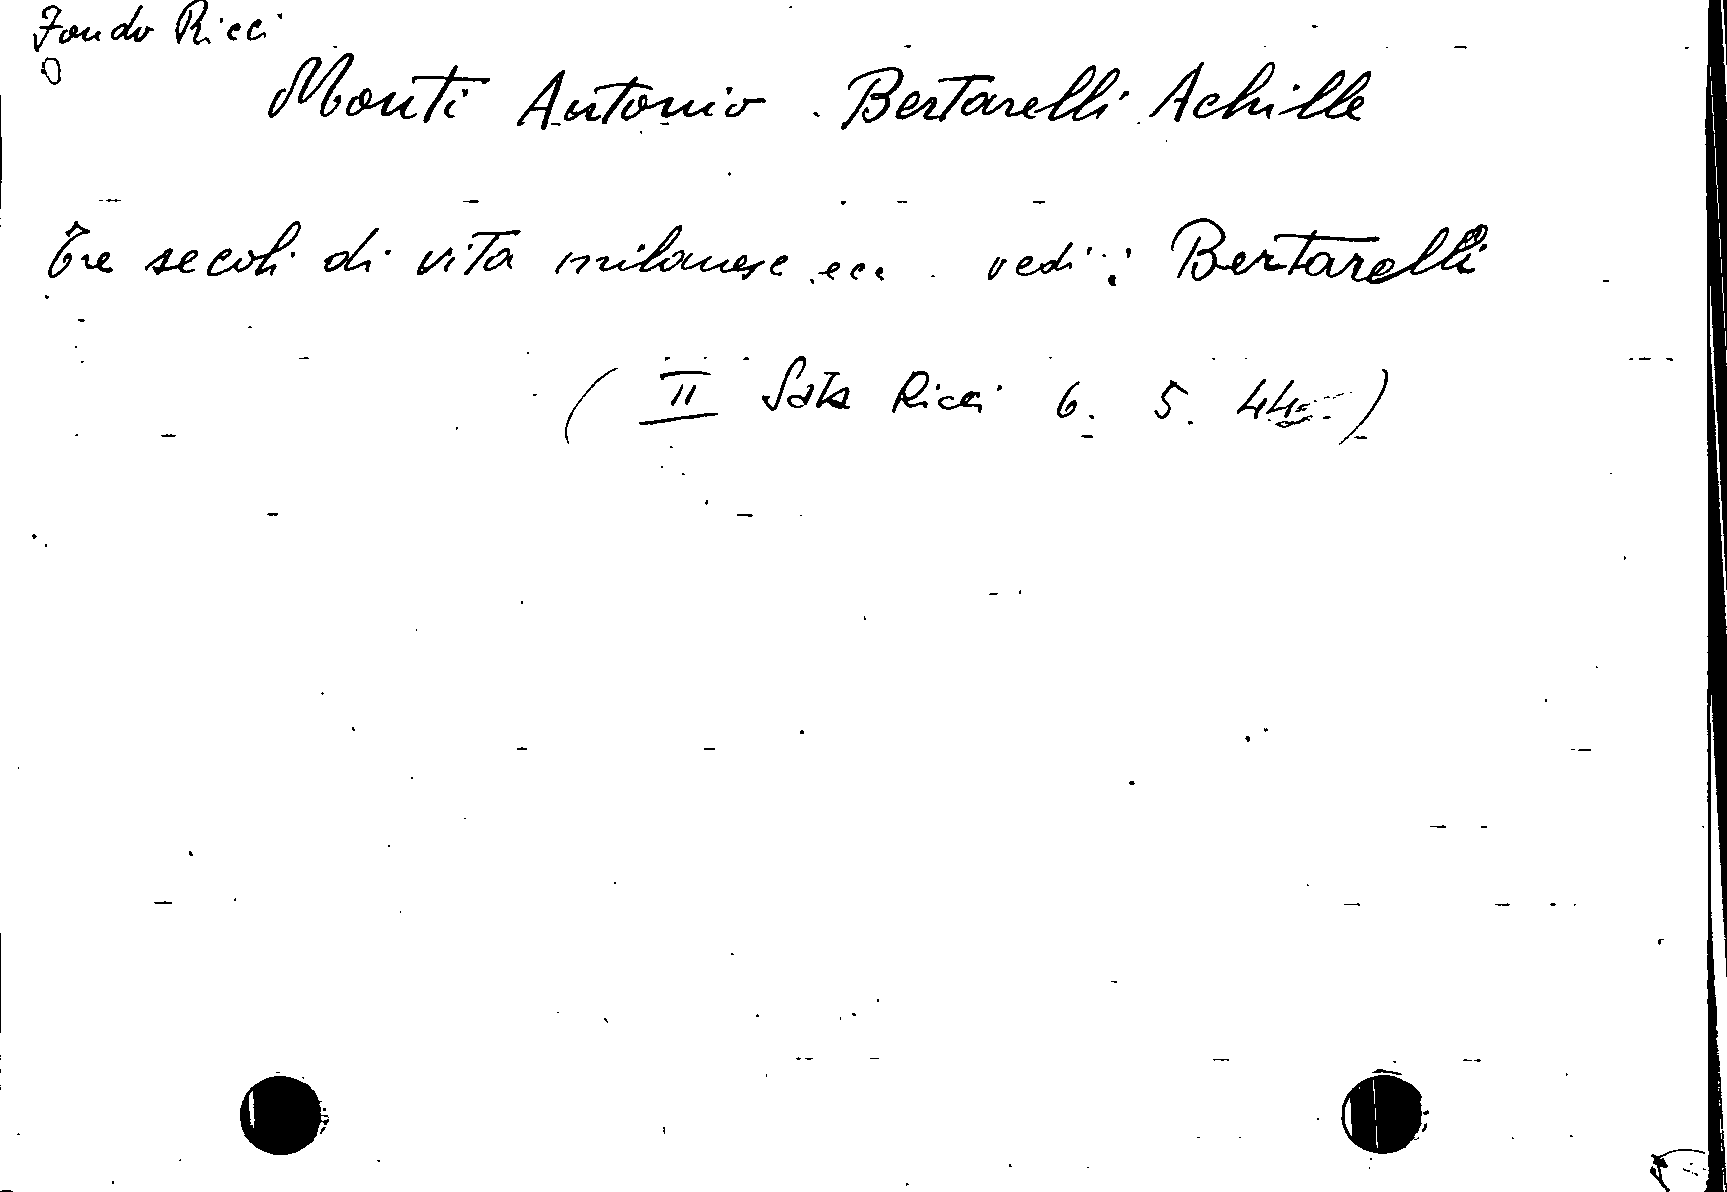 Fondo Ricci
O
Monti Antonio . Bertarelli Achille
Tre secoli di vita milanese ecc . vedi : Bertarelli
( II Sala Ricci 6. 5. 44 )